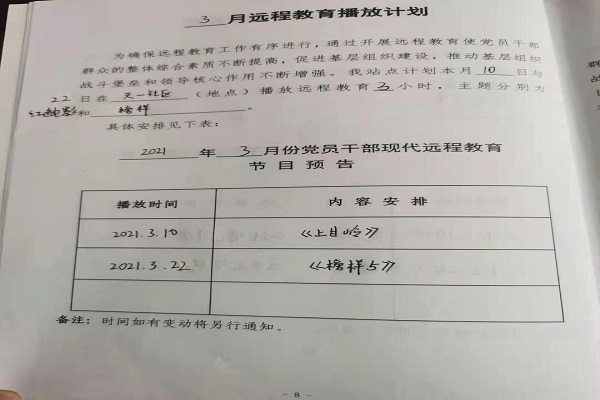 3 月远程教育播放计划
为确保远程教育工作有序进行，通过开展远程教育使党员干部
群众的整体综合素质不断提高，促进基层组织建设，推动基层组织
战斗堡垒和领导核心作用不断增强。我站点计划本月 10 日与
22 日在 天一社区 （地点）播放远程教育 3 小时，主题分别为
红色电影 和 榜样 。
具体安排见下表：
2021 年 3 月份党员干部现代远程教育
节目预告
播放时间 内容安排
2021.3.10 《上甘岭》
2021.3.22 《榜样5》
备注：时间如有变动将另行通知。
- 8 -